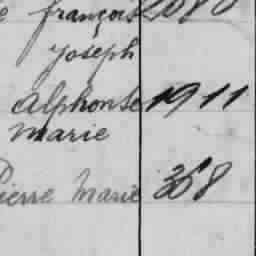 françois 2080
Joseph
Alphonse 1911
Marie
Pierre Marie 358